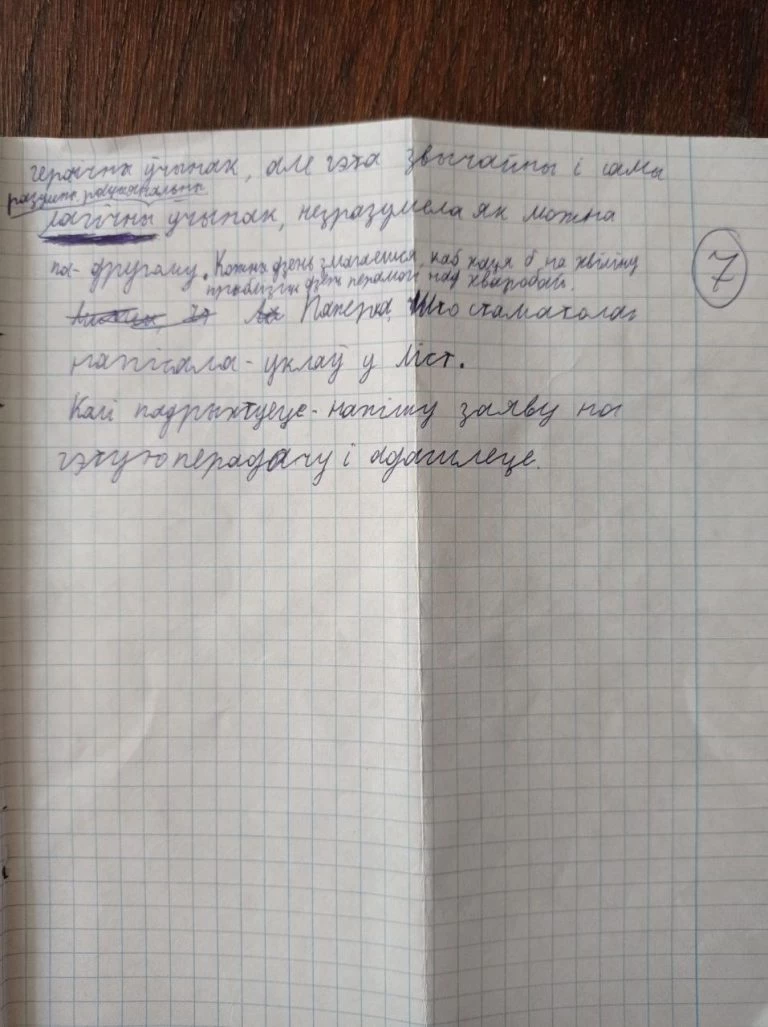 герачны ўчынак, але гэта звычайны і самы
разумны, рацыянальны
лагічны ўчынак, незразумела як можна
па-другому. Кожны дзень змагаешся, каб хаця б на хвіліну
наблізіць дзень перамогі над хваробай.
Паперка, што стаматолаг
напісала - уклаў у ліст.
Калі падрыхтуеце - напішу заяву на
гэтую перадачу і адашлеце.
7